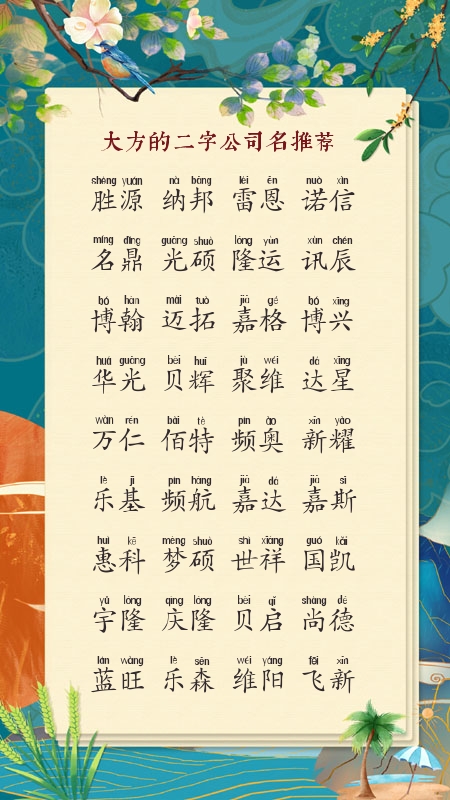 大方的二字公司名推荐
shèng yuán nà bāng léi ēn nuò xìn
胜源 纳邦 雷恩 诺信
míng dǐng guāng shuò lóng yùn xùn chén
名鼎 光硕 隆运 讯辰
bó hàn mài tuò jiā gé bó xīng
博翰 迈拓 嘉格 博兴
huá guāng bèi huī jù wéi dá xīng
华光 贝辉 聚维 达星
wàn rén bǎi tè pín ào xīn yào
万仁 佰特 频奥 新耀
lè jī pín háng jiā dá jiā sī
乐基 频航 嘉达 嘉斯
huì kē mèng shuò shì xiáng guó kǎi
惠科 梦硕 世祥 国凯
yǔ lóng qìng lóng bèi qǐ shàng dé
宇隆 庆隆 贝启 尚德
lán wàng lè sēn wéi yáng fēi xīn
蓝旺 乐森 维阳 飞新